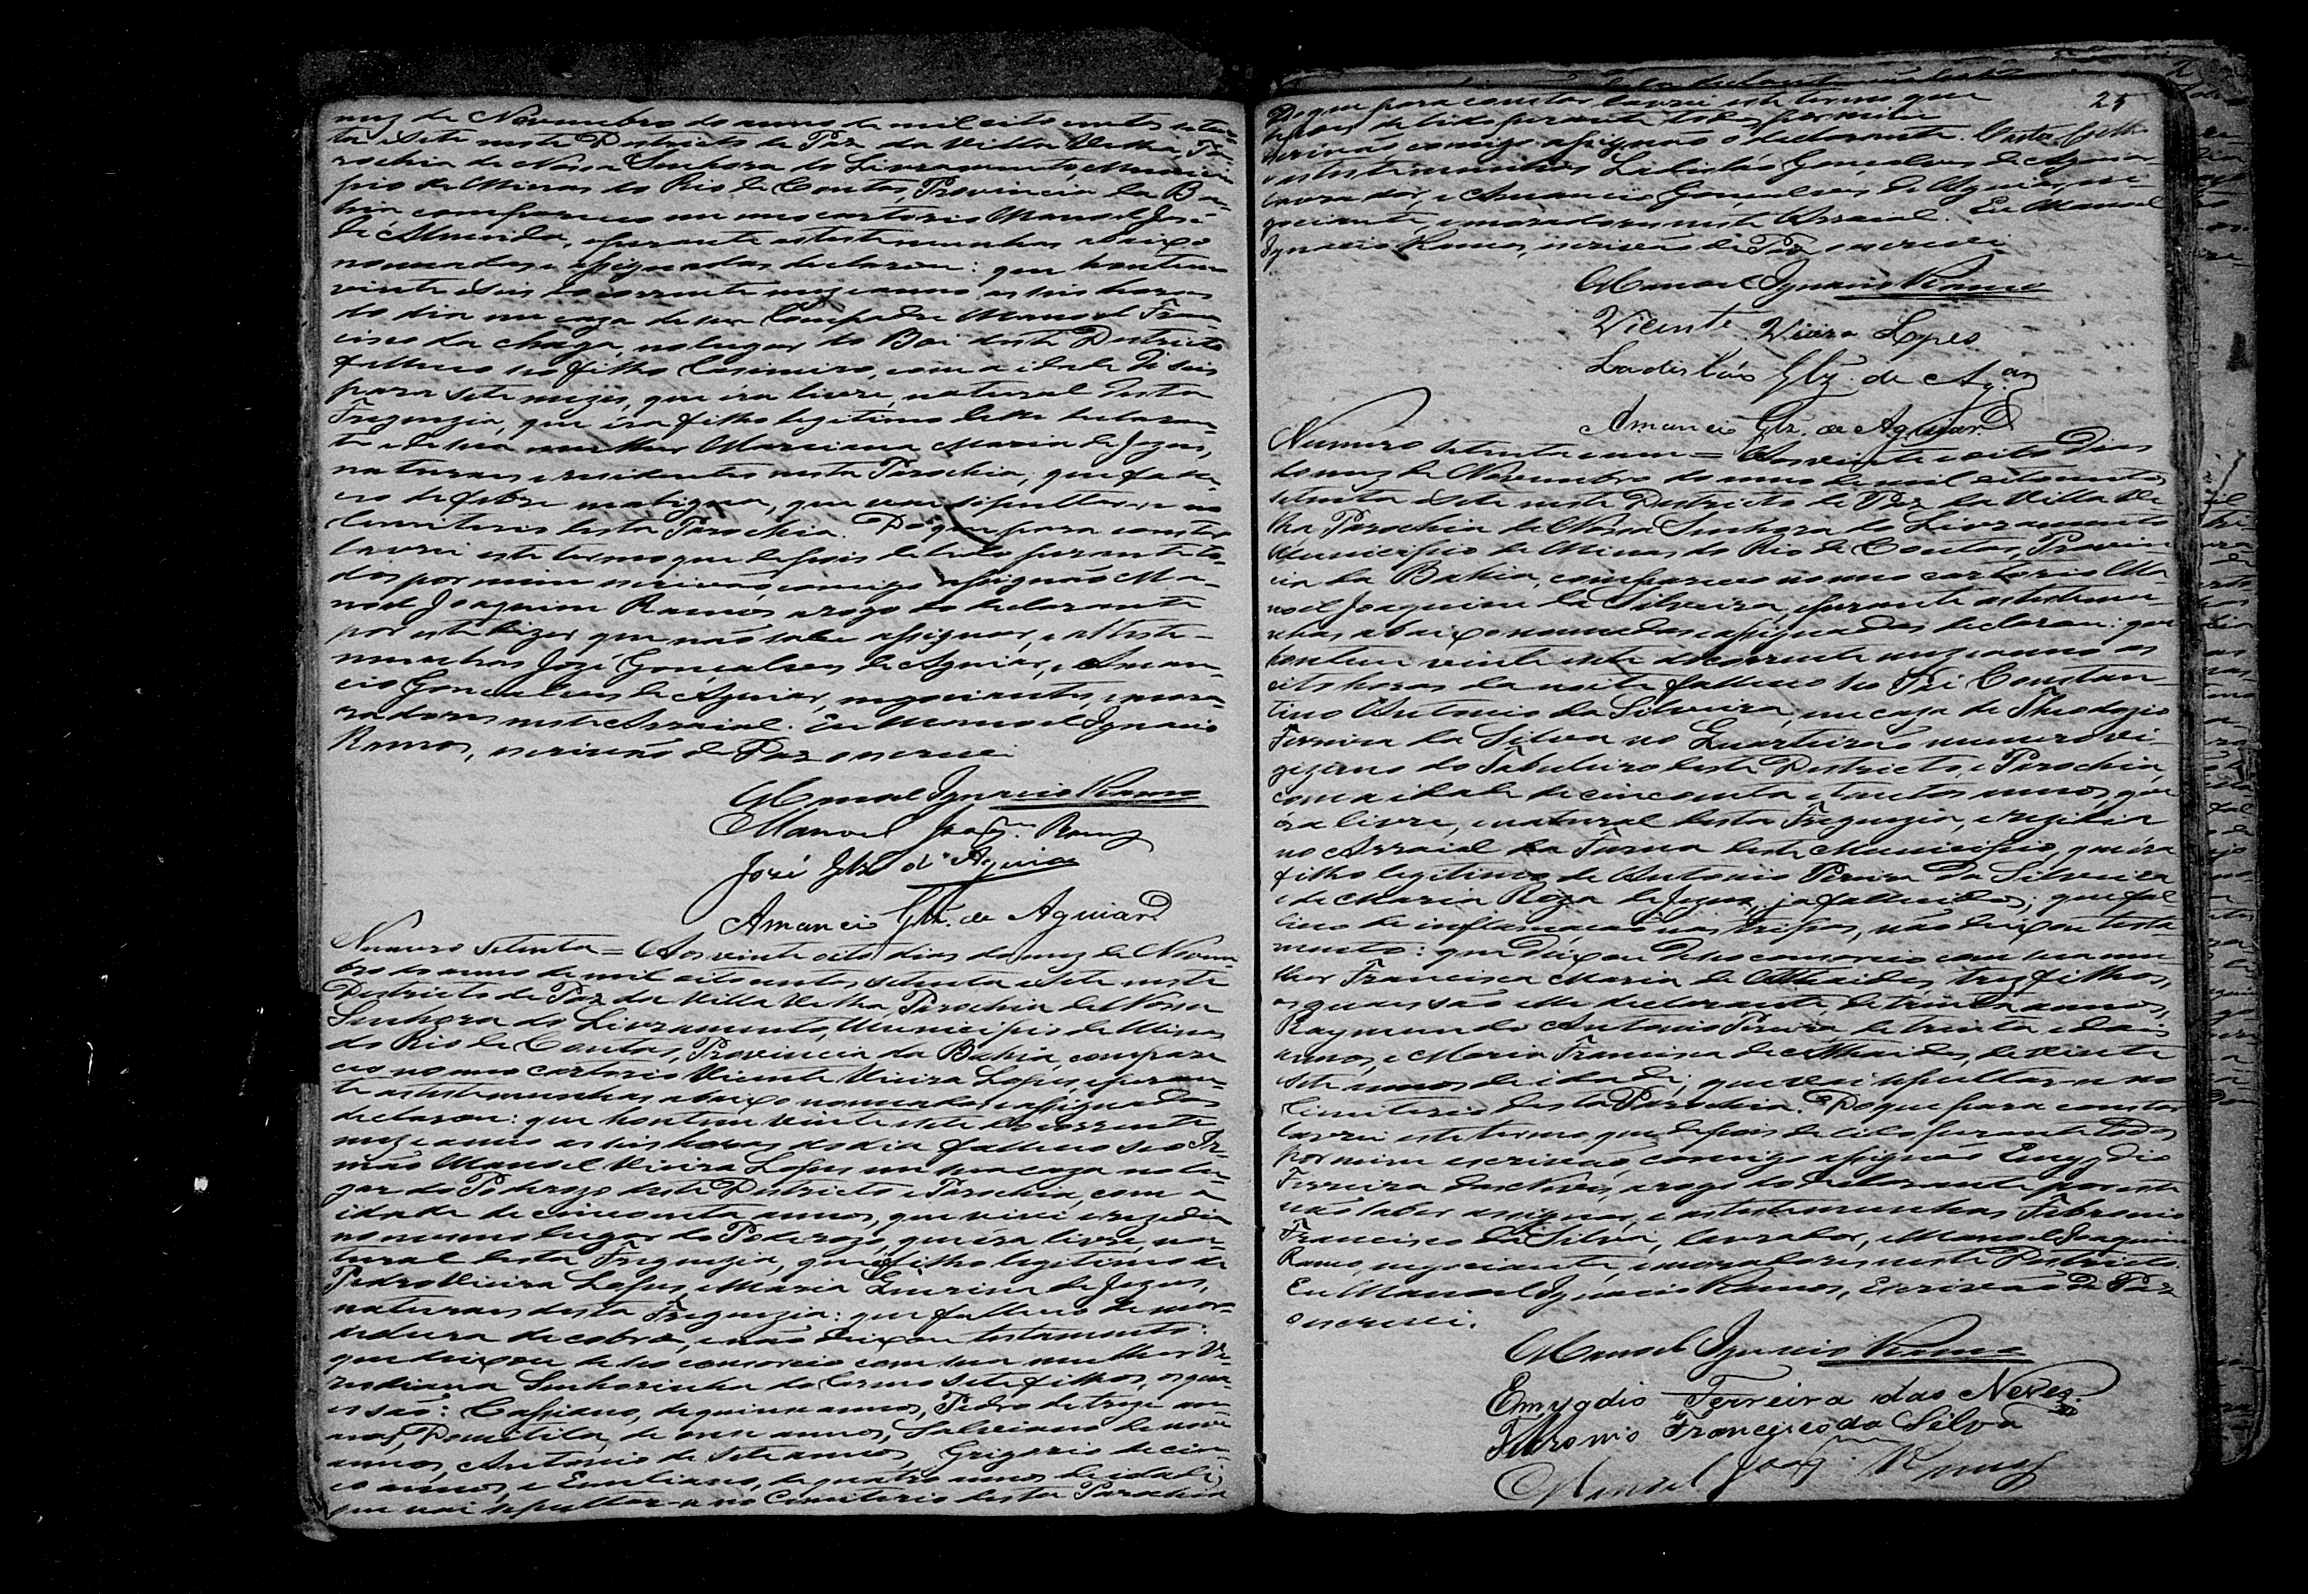 mez de Novembro do anno de mil oito centos seten-
ta e Sete neste Districto de Paz da Villa Velha, Pa-
rochia de Nossa Senhora do Livramento, Munici-
pio de Minas do Rio de Contas, Provincia da Ba-
hia compareceo em meo cartorio Manoel José
de Almeida, e perante as testemunhas abaixo
nomeadas e assignadas declarou: que hontem
vinte e seis do corrente mez e anno as seis horas
do dia em caza de seu Compadre Manoel Fran-
cisco da Chaga, no lugar do Boi deste Districto
falleceo seo filho Casimiro, com a idade de seis
para sete mezes, que éra livre, natural desta
Freguezia, que éra filho legitimo delle declaran-
te e de sua mulher Marciana Maria de Jezus,
naturaes e residentes nesta Parochia; que falle-
ceo de febre maligna, que vai sepultar-se no
Cemiterio desta Parochia. Do que para constar
lavrei este termo que depois de lido perante to-
dos por mim escrivão, comigo assignão Ma-
noel Joaquim Ramos a rogo do declarante
por este dizer que não sabe assignar, e as teste-
munhas José Gonçalves de Aguiar, e Aman-
cio Gonçalves de Aguiar, negociantes, e mora-
radores neste Arraial. Eu Manoel Ignacio
Ramos, escrivão de Paz o escrevi
Manoel Ignacio Ramos
Manoel Joaqm. Ramos
José Glz d'Aguiar
Amancio Glz. de Aguiar
Numero setenta = Aos vinte oito dias do mez de Novem-
bro do anno de mil oito centos setenta e Sete neste
Districto de Paz da Villa Velha, Parochia de Nossa
Senhora do Livramento, Municipio de Minas
do Rio de Contas, Provincia da Bahia, compare-
ceo no meo cartorio Vicente Vieira Lopes e peran-
te as testemunhas abaixo nomeadas e assignadas
declarou: que hontem vinte e sete do corrente
mez e anno as seis horas do dia falleceo seo Ir-
mão Manoel Vieira Lopes em sua caza no lu-
gar do Poderozo deste Districto e Parochia, com a
idade de cincoenta annos, que vivi e rezedia
no mesmo lugar do Poderozo, que éra livre, na-
tural desta Freguezia, que filho legitimo de
Pedro Vieira Lopes, e Maria de Jezus,
naturaes desta Freguezia: que falleceo de mor-
dedura de cobra, e não deixou testamento:
que deixou de seo consorcio com sua mulher Vi-
ridiana Senhorinha do Carmo sete filhos, os qua-
es são: Cassiano, de quinze annos, Pedro de treze an-
nos, Domitila, de onze annos, Salviano de nove
annos, Antonio de sete annos, Grigorio de cin-
co annos, e Emiliano, de quatro annos de idade;
que vai sepultar-se no Cemiterio desta Parochia
25
Do que para constar lavrei este termo que
depois de lido perante todos por mim
escrivão comigo assignão o declarante
e as testemunhas Ladisláo Gonçalves de Aguiar
lavrador, e Amancio Gonçalves de Aguiar, ne-
gociante, e moradores neste Arraial. Eu Manoel
Ignacio Ramos, escrivão de Paz o escrevi
Manoel Ignacio Ramos
Vicente Vieira Lopes
Ladisláo Glz. de Agar
Amancio Glz. de Aguiar
Numero setenta e um = Aos vinte e oito dias
do mez de Novembro do anno de mil oito centos
setenta e Sete neste Districto de Paz da Villa Ve-
lha, Parochia de Nossa Senhora do Livramento
Municipio de Minas do Rio de Contas, Provin-
cia da Bahia, compareceo no meo cartorio Ma-
noel Joaquim da Silveira, e perante as testemu-
nhas abaixo nomeadas e assignadas declarou: que
hontem vinte e sete do corrente mez e anno as
oito horas da noite falleceo seo Pai Constan-
tino Antonio da Silveira, em caza de Theodozio
Ferreira da Silva no Quarteirão numero vi-
gezimo do Tabuleiro deste Districto, e Parochia,
com a idade de cincoenta e tantos annos, que
éra livre, e natural desta Freguezia, e rezidia
no Arraial da Furna deste Municipio, que éra
filho legitimo de Antonio Pereira da Silveira
e de Maria Roza de Jezus, ja fallecidos; que fal-
leceo de inflamação nas tripas, não deixou testa-
mento: que deixou de seo consorcio com sua mu-
lher Francisca Maria de Athaides, trez filhos,
os quaes são elle declarante, de trinta annos,
Raymundo Antonio Pereira de trinta e dois
annos, e Maria Francisca de Athaides, de vinte
sete annos de idade; que vai sepultar-se no
Cemiterio desta Parochia. Do que para constar
lavrei este termo que depois de lido perante todos
por mim escrivão, comigo assignão Emygdio
Ferreira das Neves, a rogo do declarante por este
não saber assignar, e as testemunhas Febronio
Francisco da Silva, lavrador, e Manoel Joaquim
Ramos, negociante, e moradores neste Districto.
Eu Manoel Ignacio Ramos, Escrivão de Paz
o escrevi.
Manoel Ignacio Ramos
Emygdio Ferreira das Neves
Febronio Francisco da Silva
Manoel Joaqm. Ramos